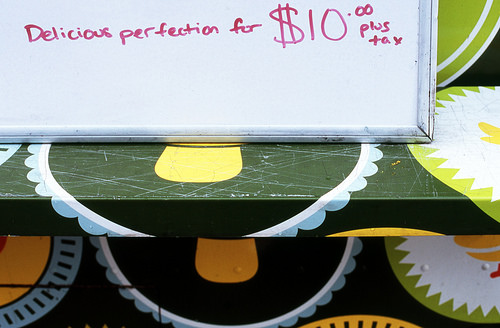 Delicious perfection for $10.00 plus
tax